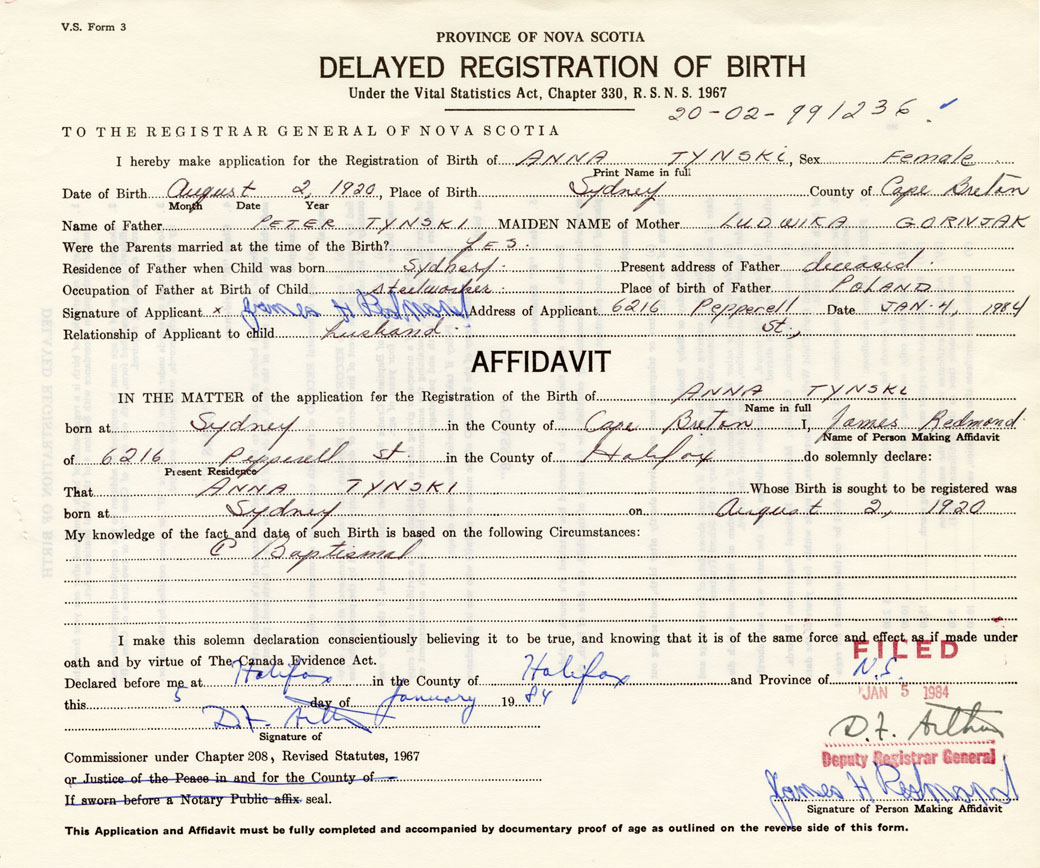 V.S. Form 3
PROVINCE OF NOVA SCOTIA
DELAYED REGISTRATION OF BIRTH
Under the Vital Statistics Act, Chapter 330, R. S. N. S. 1967
20-02-991236
TO THE REGISTRAR GENERAL OF NOVA SCOTIA
I hereby make application for the Registration of Birth of ANNA TYNSKI, Sex Female
Print Name in full
Date of Birth August 2, 1920, Place of Birth Sydney County of Cape Breton
Month Date Year
Name of Father PETER TYNSKI MAIDEN NAME of Mother LUDWIKA GORNJAK
Were the Parents married at the time of the Birth? YES.
Residence of Father when Child was born Sydney. Present address of Father deceased.
Occupation of Father at Birth of Child Steelworker. Place of birth of Father POLAND
Signature of Applicant x James H Redmond Address of Applicant 6216 Pepperell St., Date JAN. 4, 1984
Relationship of Applicant to child husband.
AFFIDAVIT
IN THE MATTER of the application for the Registration of the Birth of ANNA TYNSKI
Name in full
born at Sydney in the County of Cape Breton I, James Redmond
Name of Person Making Affidavit
of 6216 Pepperell St. in the County of Halifax do solemnly declare:
Present Residence
That ANNA TYNSKI Whose Birth is sought to be registered was
born at Sydney on August 2, 1920
My knowledge of the fact and date of such Birth is based on the following Circumstances:
Baptismal
I make this solemn declaration conscientiously believing it to be true, and knowing that it is of the same force and effect as if made under
oath and by virtue of The Canada Evidence Act.
FILED
Declared before me at Halifax in the County of Halifax and Province of N.S.
JAN 5 1984
this 5 day of January 1984
D.F. Arthur
D.F. Arthur
Signature of
Deputy Registrar General
Commissioner under Chapter 208, Revised Statutes, 1967
or Justice of the Peace in and for the County of
James H Redmond
If sworn before a Notary Public affix seal.
Signature of Person Making Affidavit
This Application and Affidavit must be fully completed and accompanied by documentary proof of age as outlined on the reverse side of this form.